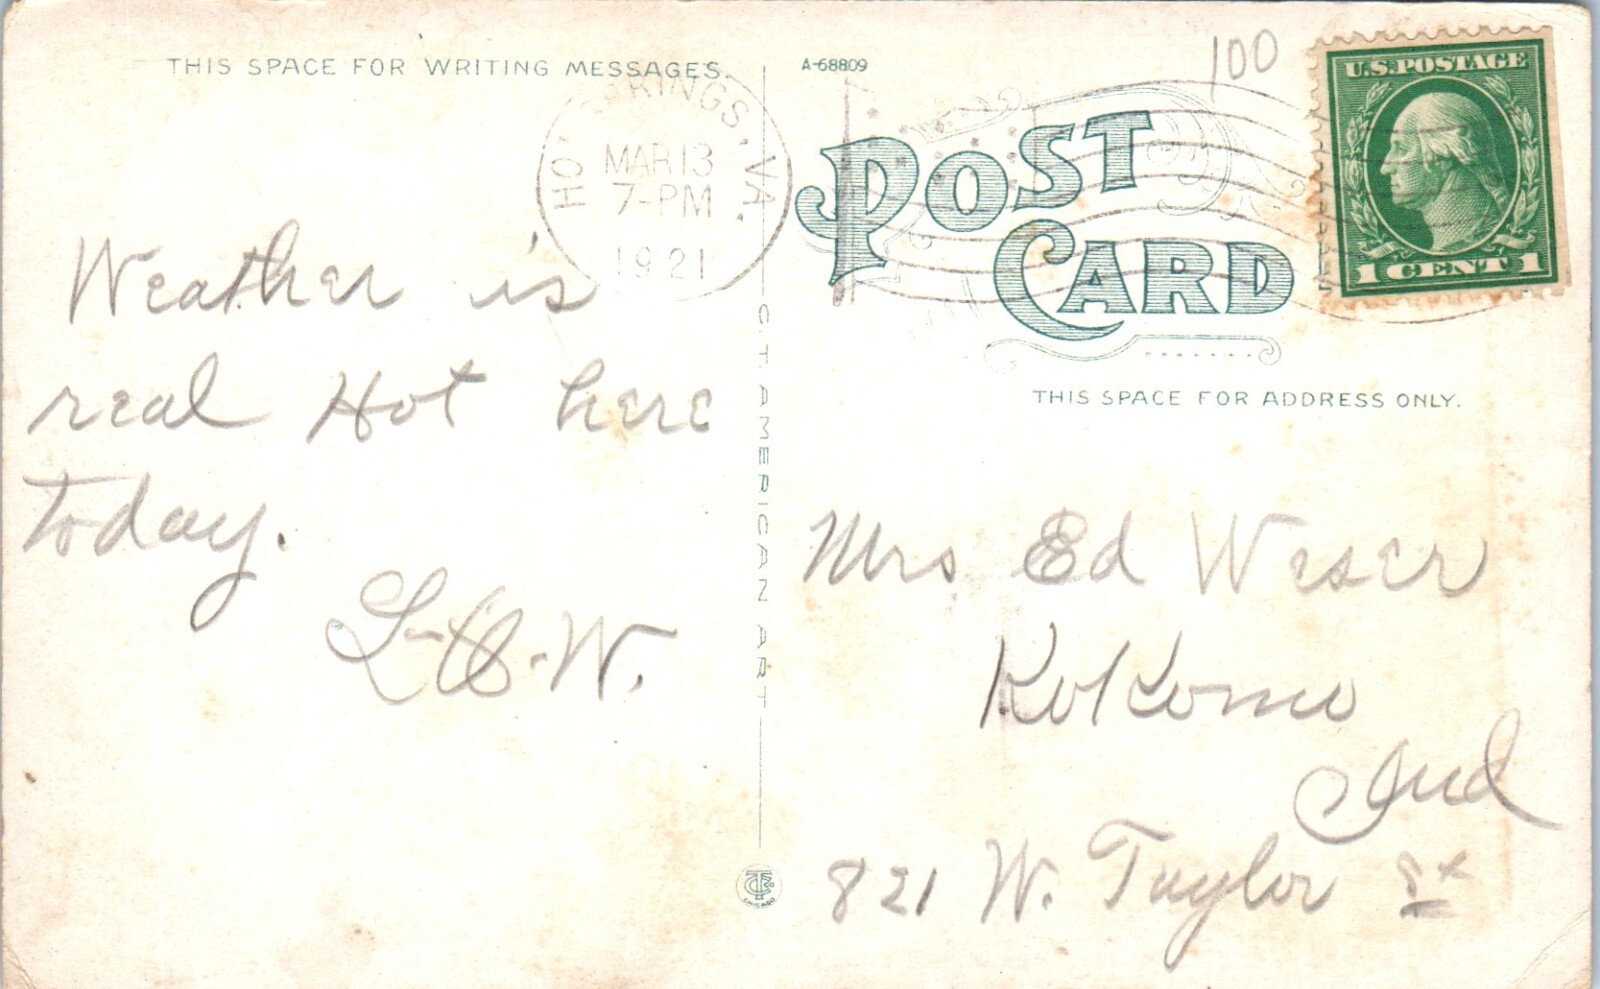 THIS SPACE FOR WRITING MESSAGES.
A-68809
100
U.S. POSTAGE
1 CENT 1
HOT SPRINGS, VA.
MAR 13
7-PM
1921
POST
CARD
THIS SPACE FOR ADDRESS ONLY.
Weather is
real Hot here
today.
L-O-W.
C T AMERICAN ART
Mrs Ed Weser
Kokomo
Ind
821 W. Taylor St
CHICAGO